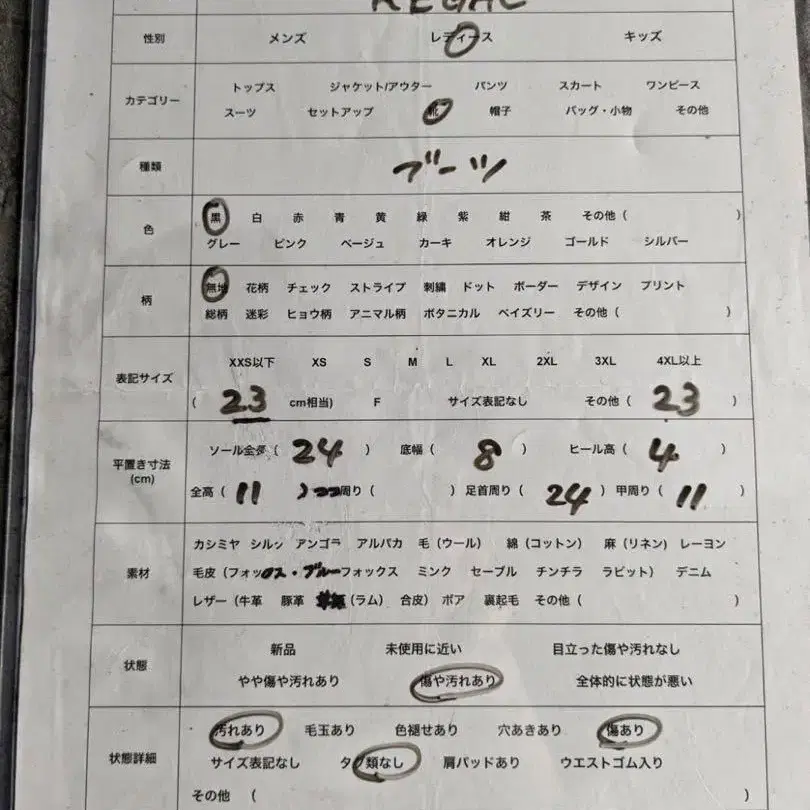 REGAL
性別 メンズ レディース キッズ
カテゴリー
トップス ジャケット/アウター パンツ スカート ワンピース
スーツ セットアップ 靴 帽子 バッグ・小物 その他
種類 ブーツ
色
黒 白 赤 青 黄 緑 紫 紺 茶 その他 ( )
グレー ピンク ベージュ カーキ オレンジ ゴールド シルバー
柄
無地 花柄 チェック ストライプ 刺繍 ドット ボーダー デザイン プリント
総柄 迷彩 ヒョウ柄 アニマル柄 ボタニカル ペイズリー その他 ( )
表記サイズ
XXS以下 XS S M L XL 2XL 3XL 4XL以上
( 23 cm相当) F サイズ表記なし その他 ( 23 )
平置き寸法
(cm)
ソール全長 ( 24 ) 底幅 ( 8 ) ヒール高 ( 4 )
全高 ( 11 ) 周り ( ) 足首周り ( 24 ) 甲周り ( 11 )
素材
カシミヤ シルク アンゴラ アルパカ 毛 (ウール) 綿 (コットン) 麻 (リネン) レーヨン
毛皮 (フォックス・ブルーフォックス ミンク セーブル チンチラ ラビット) デニム
レザー (牛革 豚革 (ラム) 合皮) ボア 裏起毛 その他 ( )
状態
新品 未使用に近い 目立った傷や汚れなし
やや傷や汚れあり 傷や汚れあり 全体的に状態が悪い
状態詳細
汚れあり 毛玉あり 色褪せあり 穴あきあり 傷あり
サイズ表記なし タグ類なし 肩パッドあり ウエストゴム入り
その他 ( )